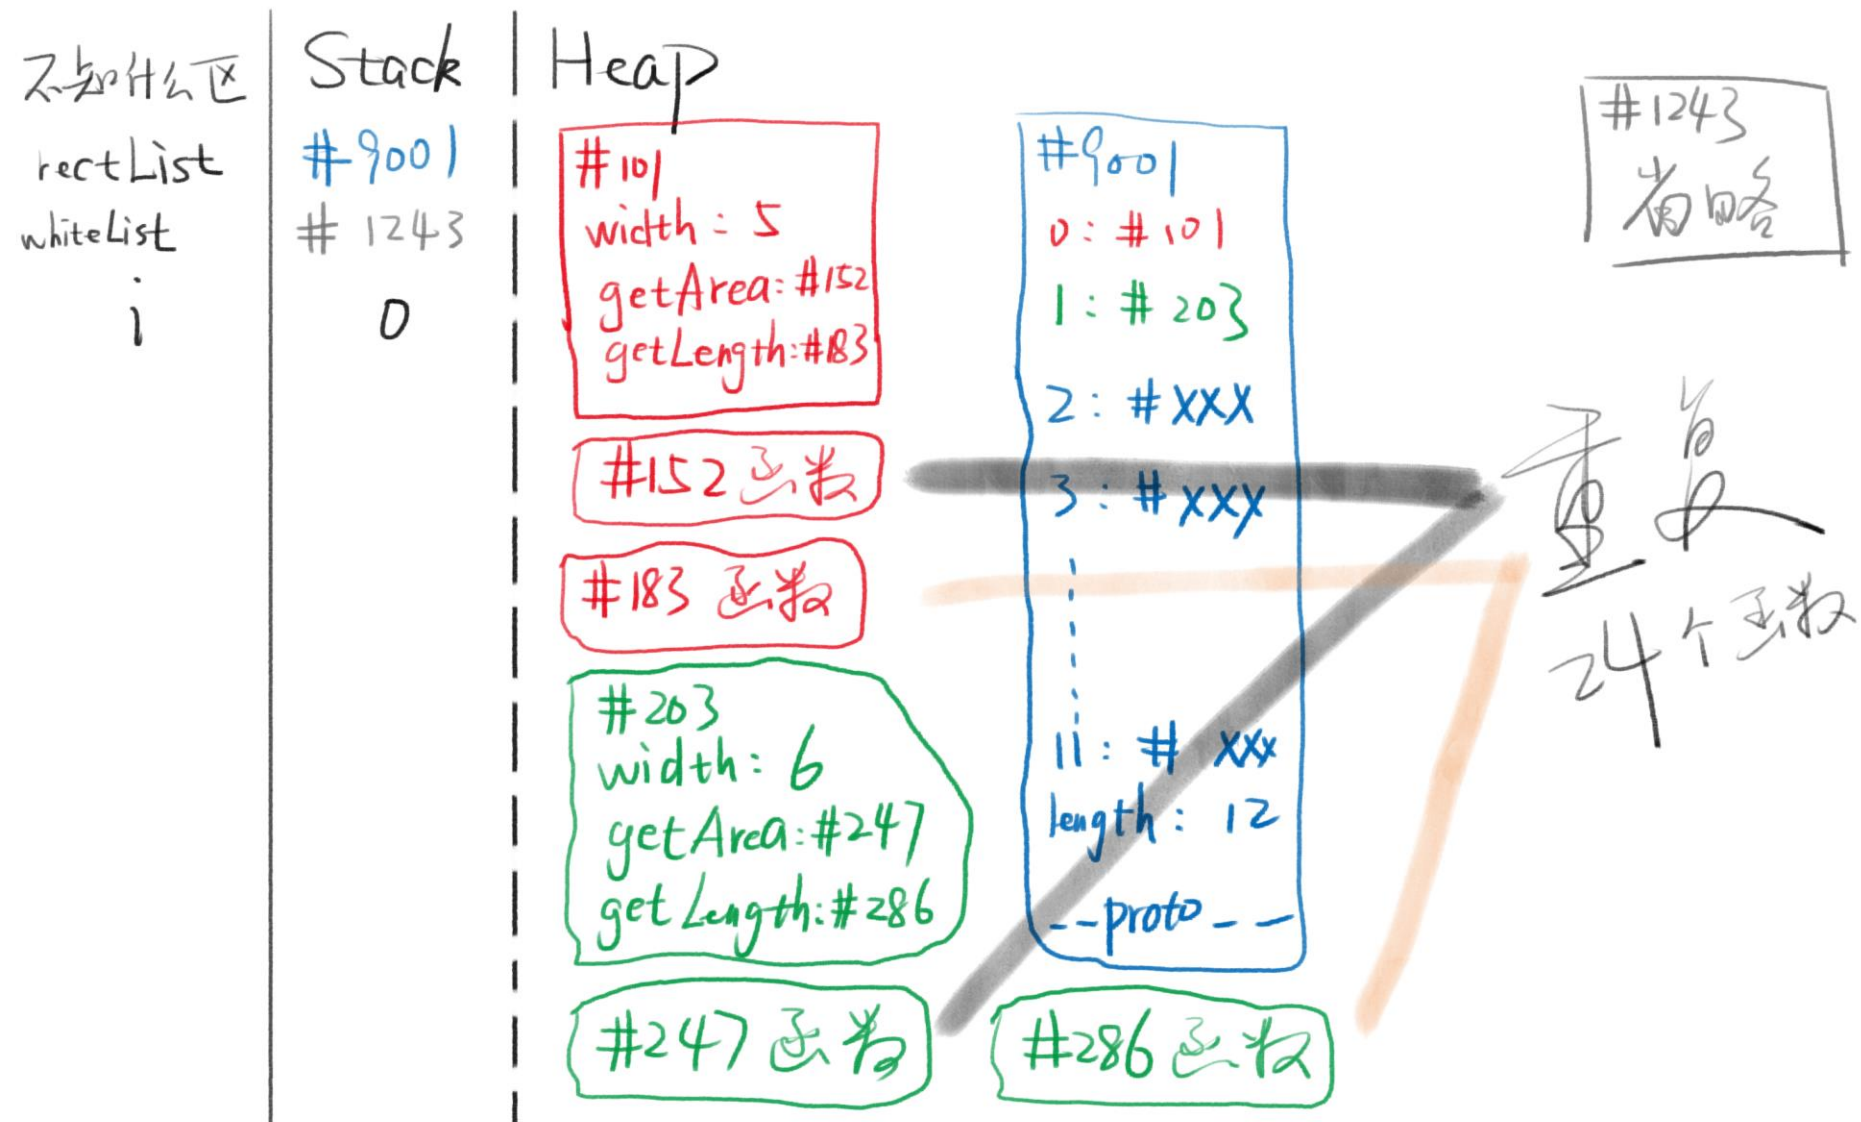 不知什么区
rectList
whiteList
i
Stack
#9001
# 1243
0
Heap
#101
width: 5
getArea:#152
getLength:#183
#152 函数
#183 函数
#203
width: 6
getArea:#247
getLength:#286
#247 函数
#9001
0: #101
1: #203
2: #XXX
3: #XXX
11: # XXX
length: 12
__proto__
#286 函数
#1243
省略
重复
24个函数